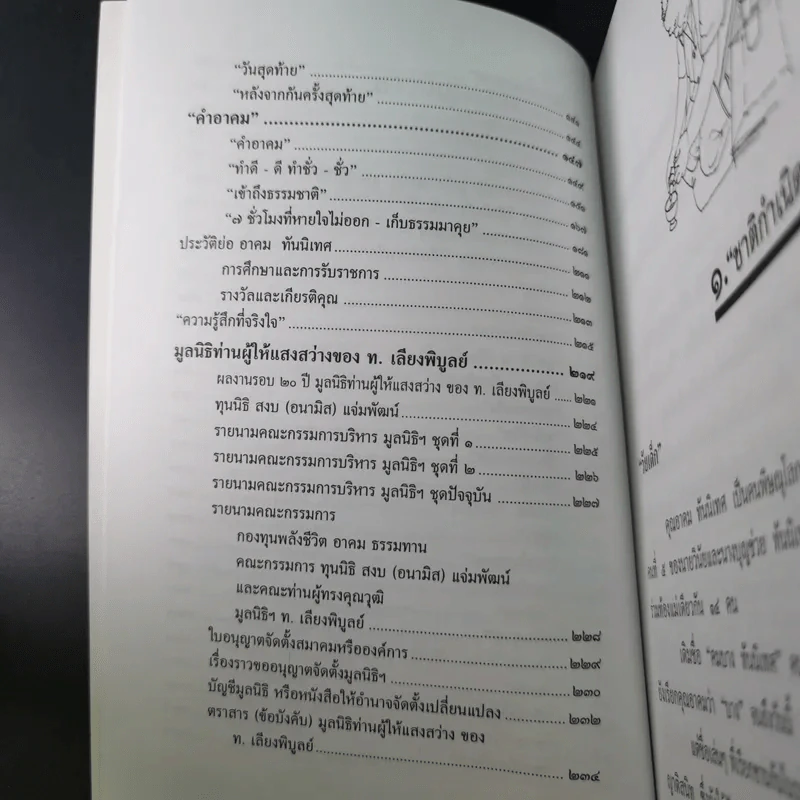 “วันสุดท้าย”
“หลังจากกันครั้งสุดท้าย” ๑๔๑
“คำอาคม” ๑๔๕
“คำอาคม” ๑๔๗
“ทำดี - ดี ทำชั่ว - ชั่ว” ๑๔๙
“เข้าถึงธรรมชาติ” ๑๕๑
“๗ ชั่วโมงที่หายใจไม่ออก - เก็บธรรมมาคุย” ๑๖๗
ประวัติย่อ อาคม ทันนิเทศ ๑๘๑
การศึกษาและการรับราชการ ๒๑๑
รางวัลและเกียรติคุณ ๒๑๒
“ความรู้สึกที่จริงใจ” ๒๑๓
๒๑๕
มูลนิธิท่านผู้ให้แสงสว่างของ ท. เลียงพิบูลย์ ๒๑๙
ผลงานรอบ ๒๐ ปี มูลนิธิท่านผู้ให้แสงสว่าง ของ ท. เลียงพิบูลย์ ๒๒๑
ทุนนิธิ สงบ (อนามิส) แจ่มพัฒน์ ๒๒๔
รายนามคณะกรรมการบริหาร มูลนิธิฯ ชุดที่ ๑ ๒๒๕
รายนามคณะกรรมการบริหาร มูลนิธิฯ ชุดที่ ๒ ๒๒๖
รายนามคณะกรรมการบริหาร มูลนิธิฯ ชุดปัจจุบัน ๒๒๗
รายนามคณะกรรมการ
กองทุนพลังชีวิต อาคม ธรรมทาน
คณะกรรมการ ทุนนิธิ สงบ (อนามิส) แจ่มพัฒน์
และคณะท่านผู้ทรงคุณวุฒิ
มูลนิธิฯ ท. เลียงพิบูลย์ ๒๒๘
ใบอนุญาตจัดตั้งสมาคมหรือองค์การ ๒๒๙
เรื่องราวขออนุญาตจัดตั้งมูลนิธิฯ ๒๓๐
บัญชีมูลนิธิ หรือหนังสือให้อำนาจจัดตั้งเปลี่ยนแปลง ๒๓๒
ตราสาร (ข้อบังคับ) มูลนิธิท่านผู้ให้แสงสว่าง ของ
ท. เลียงพิบูลย์ ๒๓๔
๑. “ชาติกำเนิด
“วัยเด็ก”
คุณอาคม ทันนิเทศ เป็นคนพิษณุโลก
คนที่ ๕ ของนายวินัยและนางบุญช่วย ทันนิ
ร่วมท้องแม่เดียวกัน ๑๔ คน
เดิมชื่อ “คมบาง ทันนิเทศ”
ยังเรียกคุณอาคมว่า “บาง”